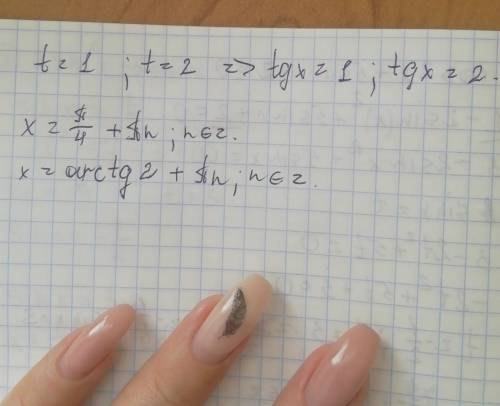 t = 1 ; t = 2 => tgx = 1 ; tgx = 2.
x = π/4 + πn ; n∈z.
x = arctg2 + πn ; n∈z.